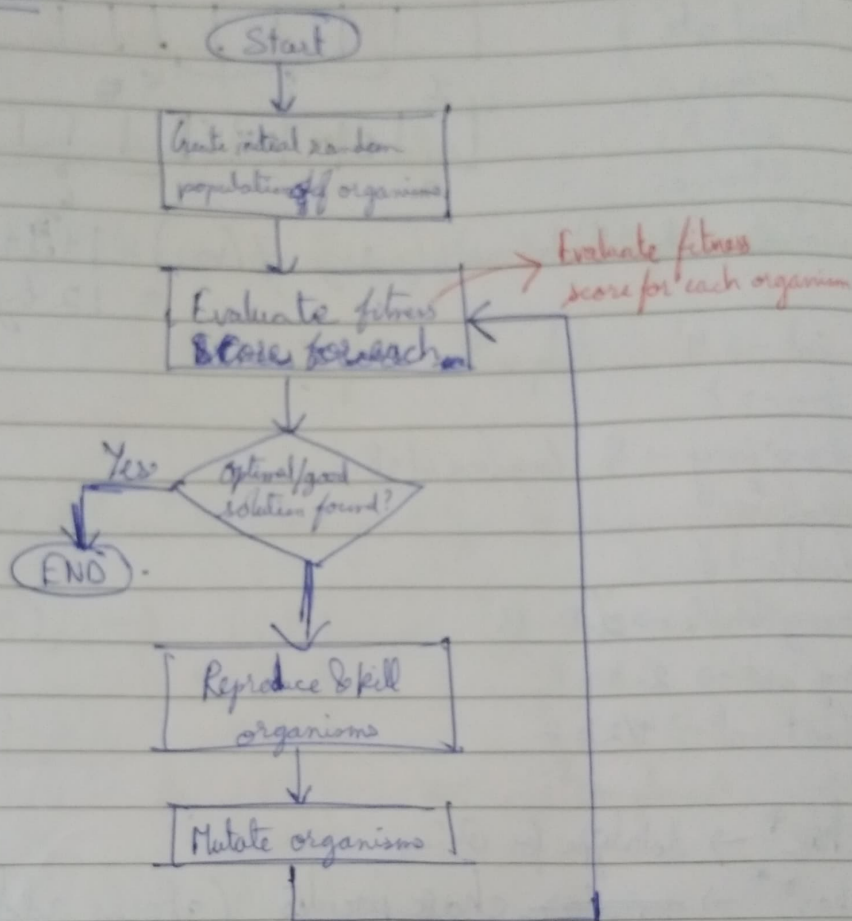 Start
Create initial random
population of organisms
Evaluate fitness
score for each
Evaluate fitness
score for each organism
Optimal/good
solution found?
Yes
END
Reproduce & kill
organisms
Mutate organisms